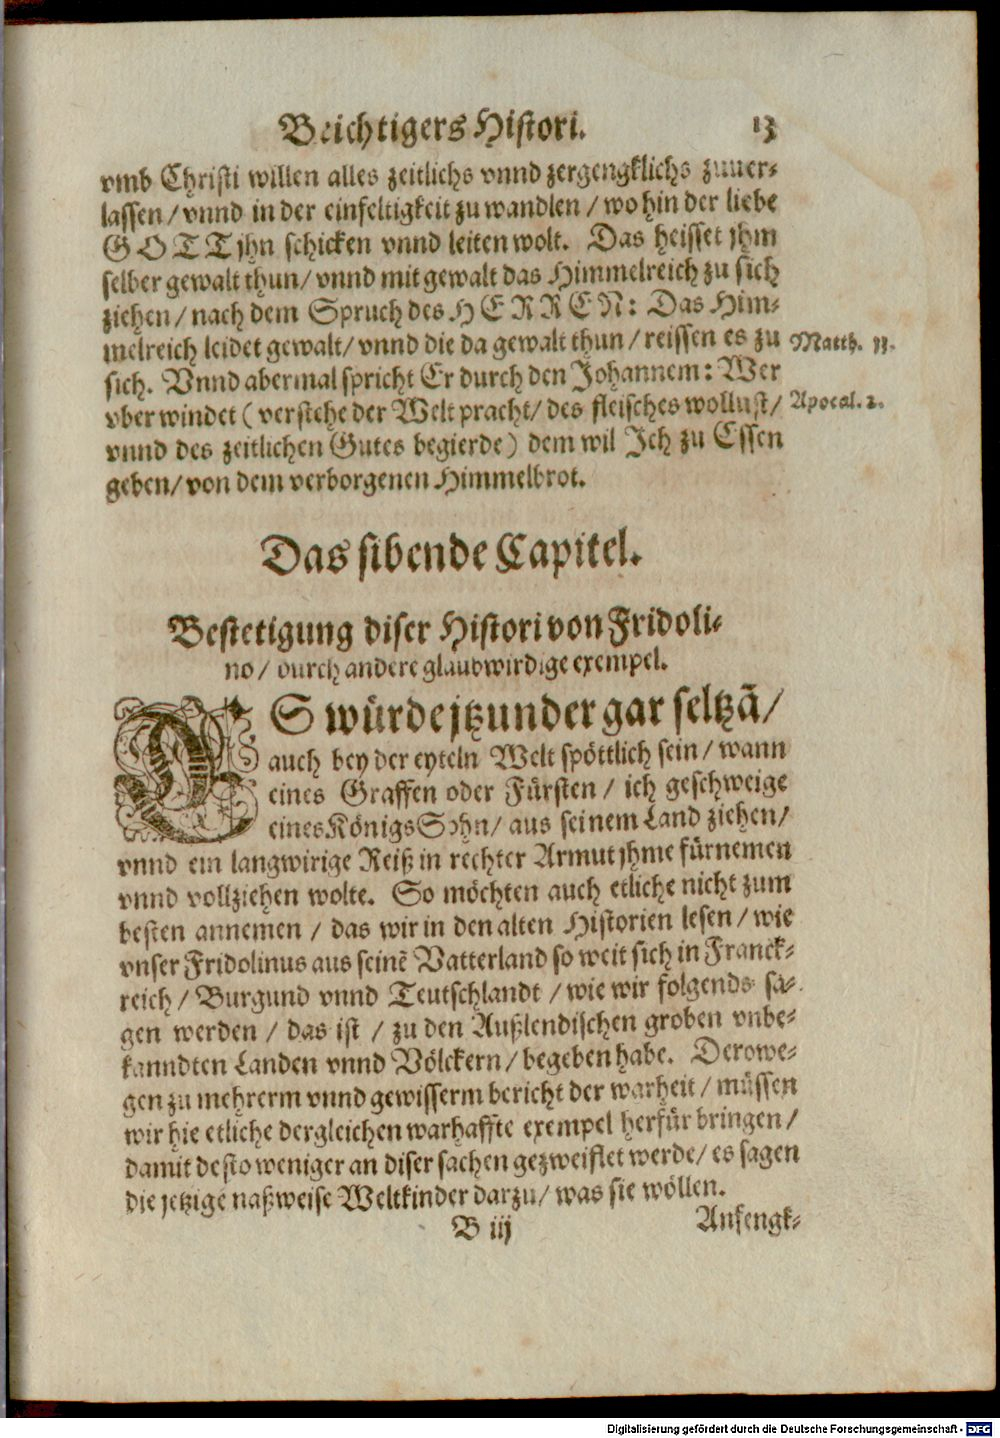 Beichtigers Histori. 13
vmb Christi willen alles zeitlichs vnnd zergengklichs zuuer⸗
lassen / vnnd in der einfeltigkeit zu wandlen / wo hin der liebe
GOTT jhn schicken vnnd leiten wolt. Das heisset jhm
selber gewalt thun / vnnd mit gewalt das Himmelreich zu sich
ziehen / nach dem Spruch des HERREN: Das Him⸗
melreich leidet gewalt / vnnd die da gewalt thun / reissen es zu
Matth. 11.
sich. Vnnd abermal spricht Er durch den Johannem: Wer
vberwindet (verstehe der Welt pracht / des fleisches wollust /
Apocal. 2.
vnnd des zeitlichen Gutes begierde) dem wil Jch zu Essen
geben / von dem verborgenen Himmelbrot.
Das sibende Capitel.
Bestetigung diser Histori von Fridoli⸗
no / durch andere glaubwirdige exempel.
ES würde jtzunder gar seltzã /
auch bey der eyteln Welt spöttlich sein / wann
eines Graffen oder Fürsten / ich geschweige
eines Königs Sohn / aus seinem Land ziehen /
vnnd ein langwirige Reiß in rechter Armut jhme fürnemen
vnnd vollziehen wolte. So möchten auch etliche nicht zum
besten annemen / das wir in den alten Historien lesen / wie
vnser Fridolinus aus seinẽ Vatterland so weit sich in Franck⸗
reich / Burgund vnnd Teutschlandt / wie wir folgends sa⸗
gen werden / das ist / zu den Außlendischen groben vnbe⸗
kanndten Landen vnnd Völckern / begeben habe. Derowe⸗
gen zu mehrerm vnnd gewisserm bericht der warheit / müssen
wir hie etliche dergleichen warhaffte exempel herfür bringen /
damit desto weniger an diser sachen gezweiflet werde / es sagen
die jetzige naßweise Weltkinder darzu / was sie wöllen.
B iij Anfengk⸗
Digitalisierung gefördert durch die Deutsche Forschungsgemeinschaft - DFG